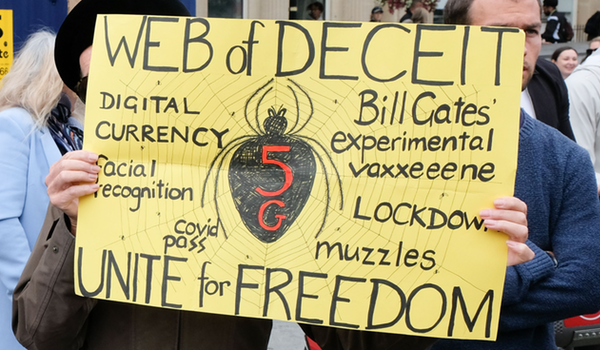 WEB of DECEIT
DIGITAL
CURRENCY
Bill Gates'
experimental
vaxxeeene
facial
recognition
5
G
LOCKDOWN
covid
pass
muzzles
UNITE for FREEDOM